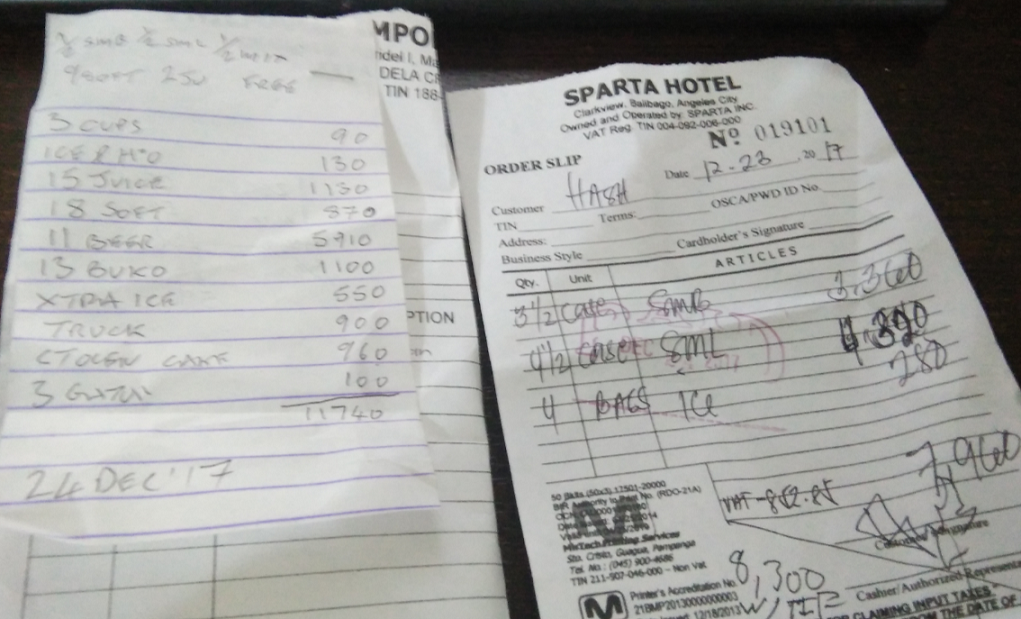 ½ SMB ½ SML ½
9 SOFT 250 FREE
3 CUPS 90
ICE R H2O 130
15 JUICE 1130
18 SOFT 870
11 BEER 5910
13 BUKO 1100
XTRA ICE 550
TRUCK 900
CTOLEN CAKE 960
3 100
11740
24 DEC '17
MPO
ndel I, M
DELA C
TIN 188-
PTION
SPARTA HOTEL
Clarkview, Balibago, Angeles City
Owned and Operated by: SPARTA INC.
VAT Reg. TIN 004-092-006-000
Nº 019101
ORDER SLIP
Date 12-23, 20 17
Customer HASH
TIN Terms: OSCA/PWD ID No.
Address:
Business Style Cardholder's Signature
Qty. Unit ARTICLES
3 1/2 case SMB 3,360
4 1/2 case SML 4,320
4 BAGS ICE 280
7,960
VAT-852.85
50 Bklts (50x3) 17501-20000
BIR Authority to Print No. (RDO-21A)
MixTech Printing Services
Sta. Cristo, Guagua, Pampanga
Tel. No.: (045) 900-4686
TIN 211-907-046-000 - Non Vat
Printer's Accreditation No.
21BMP20130000000003
12/18/2013
8,300
W/TIP
Customer Signature
Cashier/Authorized Represent
FOR CLAIMING INPUT TAXES.
FROM THE DATE OF